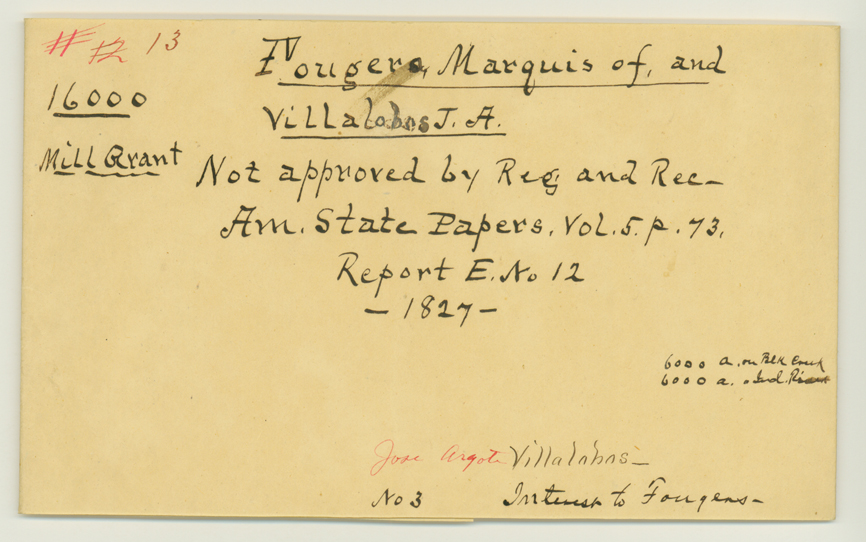 # #2 13
Fougera, Marquis of, and
16000
Villalobos J. A.
Mill Grant
Not approved by Reg and Rec-
Am. State Papers. Vol. 5. p. 73.
Report E. No 12
- 1827 -
6000 a. on Blk Creek
6000 a. " Ind. River
Jose Argote Villalobos-
No 3 Interest to Fougera-